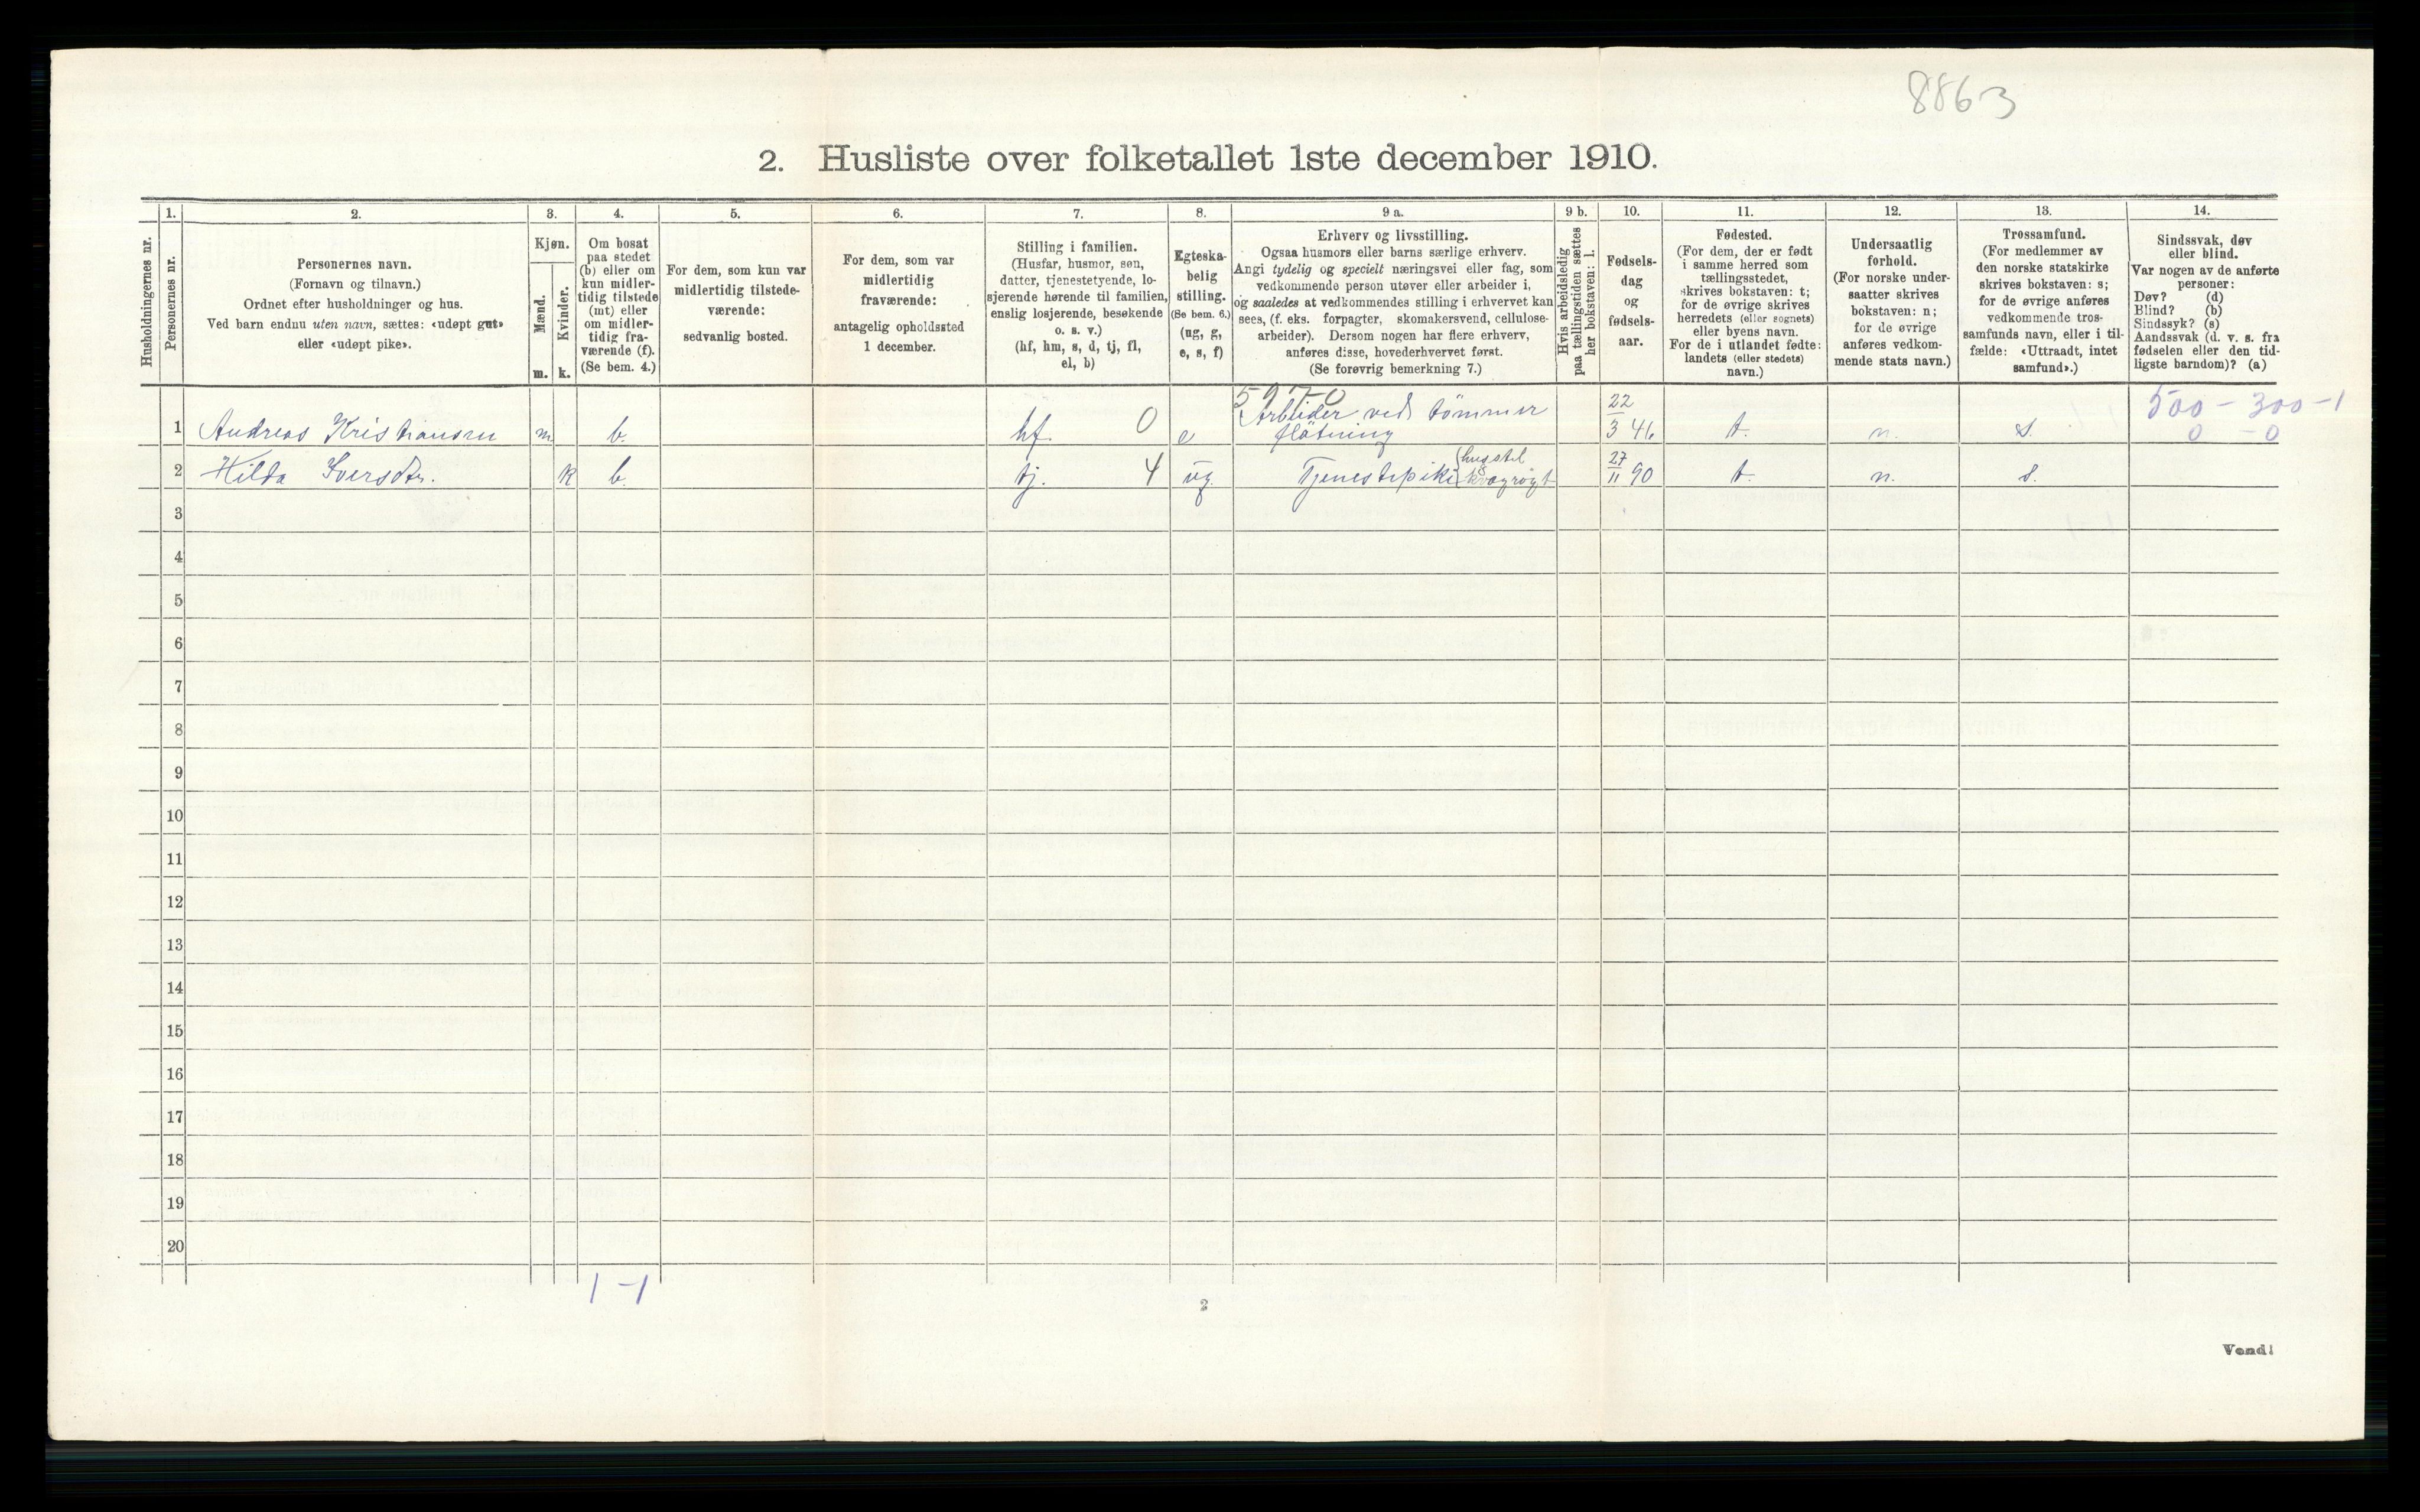 8863
2. Husliste over folketallet 1ste december 1910.
Husholdningernes nr.
1.
Personernes nr.
2.
Personernes navn.
(Fornavn og tilnavn.)
Ordnet efter husholdninger og hus.
Ved barn endnu uten navn, sættes: «udøpt gut»
eller «udøpt pike».
3.
Kjøn.
Mænd.
Kvinder.
m.
k.
4.
Om bosat
paa stedet
(b) eller om
kun midler-
tidig tilstede
(mt) eller
om midler-
tidig fra-
værende (f).
(Se bem. 4.)
5.
For dem, som kun var
midlertidig tilstede-
værende:
sedvanlig bosted.
6.
For dem, som var
midlertidig
fraværende:
antagelig opholdssted
1 december.
7.
Stilling i familien.
(Husfar, husmor, søn,
datter, tjenestetyende, lo-
sjerende hørende til familien,
enslig losjerende, besøkende
o. s. v.)
(hf, hm, s, d, tj, fl,
el, b)
8.
Egteska-
belig
stilling.
(Se bem. 6.)
(ug, g,
e, s, f)
9 a.
Erhverv og livsstilling.
Ogsaa husmors eller barns særlige erhverv.
Angi tydelig og specielt næringsvei eller fag, som
vedkommende person utøver eller arbeider i,
og saaledes at vedkommendes stilling i erhvervet kan
sees, (f. eks. forpagter, skomakersvend, cellulose-
arbeider). Dersom nogen har flere erhverv,
anføres disse, hovederhvervet først.
(Se forøvrig bemerkning 7.)
9 b.
Hvis arbeidsledig
paa tællingstiden sættes
her bokstaven: l.
10.
Fødsels-
dag
og
fødsels-
aar.
11.
Fødested.
(For dem, der er født
i samme herred som
tællingsstedet,
skrives bokstaven: t;
for de øvrige skrives
herredets (eller sognets)
eller byens navn.
For de i utlandet fødte:
landets (eller stedets)
navn.)
12.
Undersaatlig
forhold.
(For norske under-
saatter skrives
bokstaven: n;
for de øvrige
anføres vedkom-
mende stats navn.)
13.
Trossamfund.
(For medlemmer av
den norske statskirke
skrives bokstaven: s;
for de øvrige anføres
vedkommende tros-
samfunds navn, eller i til-
fælde: «Uttraadt, intet
samfund».)
14.
Sindssvak, døv
eller blind.
Var nogen av de anførte
personer:
Døv? (d)
Blind? (b)
Sindssyk? (s)
Aandssvak (d. v. s. fra
fødselen eller den tid-
ligste barndom)? (a)
500 - 300 - 1
0 - 0
1 Andreas Kristiansen m b. hf. 0 e Arbeider ved tømmer fløtning 22/3 46 t. n. s.
2 Hilda Iversdtr. k b. tj. 4 ug Tjenestepike 27/11 90 t. n. s.
3
4
5
6
7
8
9
10
11
12
13
14
15
16
17
18
19
20
1 - 1
2
Vend!